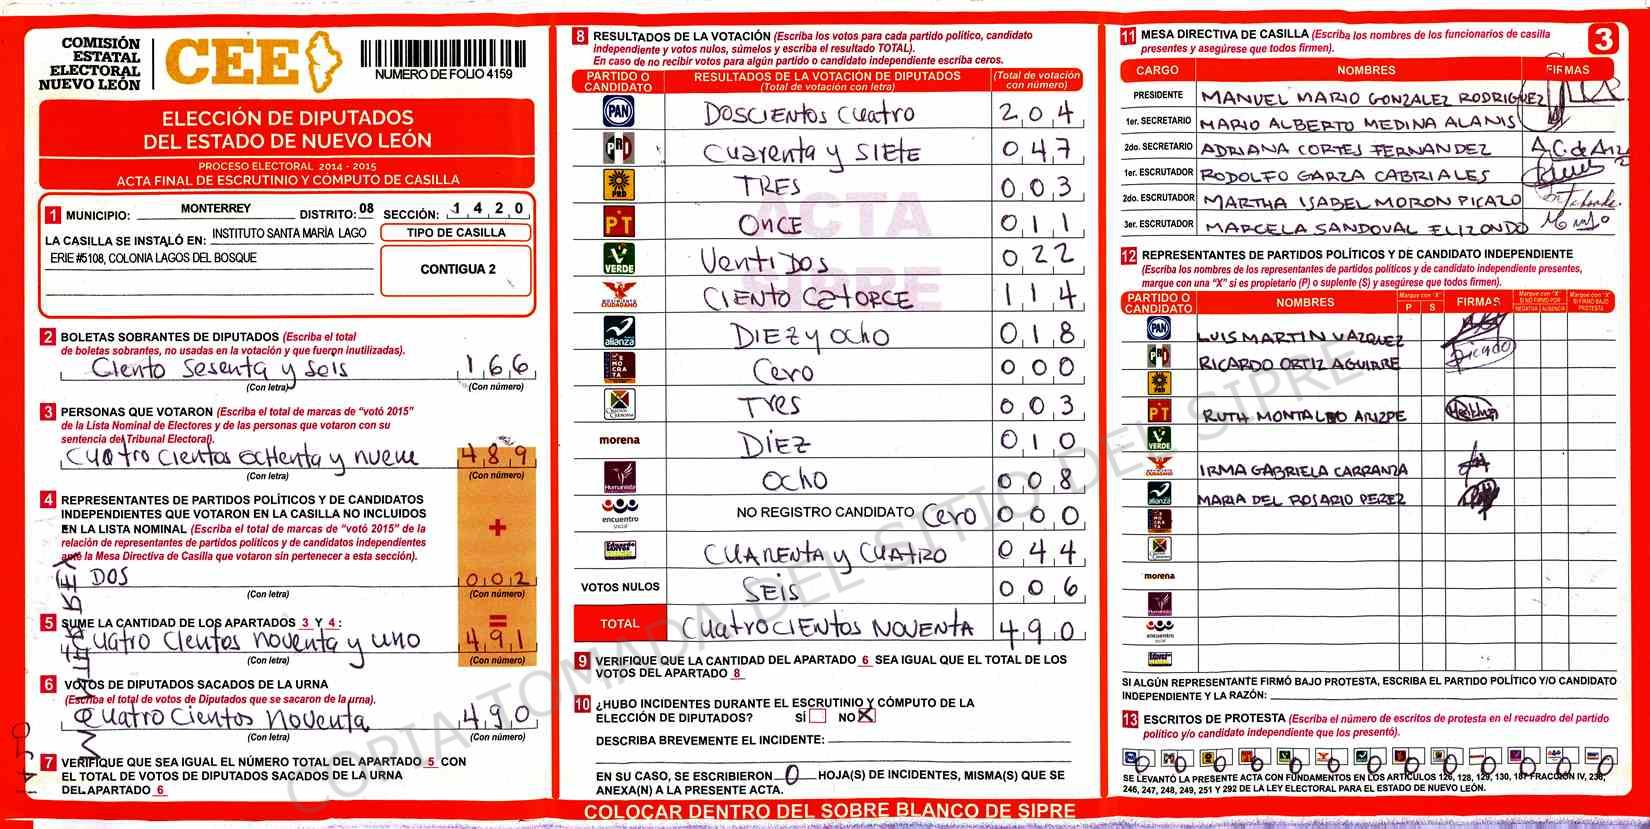 COMISIÓN
ESTATAL
ELECTORAL
NUEVO LEÓN
CEE
NUMERO DE FOLIO 4159
ELECCIÓN DE DIPUTADOS
DEL ESTADO DE NUEVO LEÓN
PROCESO ELECTORAL 2014 - 2015
ACTA FINAL DE ESCRUTINIO Y CÓMPUTO DE CASILLA
1 MUNICIPIO: MONTERREY DISTRITO: 08 SECCIÓN: 1420
LA CASILLA SE INSTALÓ EN: INSTITUTO SANTA MARÍA LAGO
ERIE #5108, COLONIA LAGOS DEL BOSQUE
TIPO DE CASILLA
CONTIGUA 2
2 BOLETAS SOBRANTES DE DIPUTADOS (Escriba el total
de boletas sobrantes, no usadas en la votación y que fueron inutilizadas).
Ciento Sesenta y seis 166
(Con letra) (Con número)
3 PERSONAS QUE VOTARON (Escriba el total de marcas de “votó 2015”
de la Lista Nominal de Electores y de las personas que votaron con su
sentencia del Tribunal Electoral).
Cuatro cientos ochenta y nueve 489
(Con letra) (Con número)
4 REPRESENTANTES DE PARTIDOS POLÍTICOS Y DE CANDIDATOS
INDEPENDIENTES QUE VOTARON EN LA CASILLA NO INCLUIDOS
EN LA LISTA NOMINAL (Escriba el total de marcas de “votó 2015” de la
relación de representantes de partidos políticos y de candidatos independientes
ante la Mesa Directiva de Casilla que votaron sin pertenecer a esta sección).
+
DOS 002
(Con letra) (Con número)
5 SUME LA CANTIDAD DE LOS APARTADOS 3 Y 4: =
Cuatro cientos noventa y uno 491
(Con letra) (Con número)
6 VOTOS DE DIPUTADOS SACADOS DE LA URNA
(Escriba el total de votos de Diputados que se sacaron de la urna).
Cuatro cientos noventa 490
(Con letra) (Con número)
7 VERIFIQUE QUE SEA IGUAL EL NÚMERO TOTAL DEL APARTADO 5 CON
EL TOTAL DE VOTOS DE DIPUTADOS SACADOS DE LA URNA
DEL APARTADO 6
8 RESULTADOS DE LA VOTACIÓN (Escriba los votos para cada partido político, candidato
independiente y votos nulos, súmelos y escriba el resultado TOTAL).
En caso de no recibir votos para algún partido o candidato independiente escriba ceros.
PARTIDO O CANDIDATO RESULTADOS DE LA VOTACIÓN DE DIPUTADOS (Total de votación con letra) (Total de votación con número)
PAN DOSCIENTOS CUATRO 204
PRI CUARENTA y SIETE 047
PRD TRES 003
PT ONCE 011
VERDE VENTIDOS 022
MOVIMIENTO CIUDADANO CIENTO CATORCE 114
alianza DIEZ y OCHO 018
DEMOCRATA Cero 000
Cruzada Ciudadana Tres 003
morena DIEZ 010
Humanista Ocho 008
encuentro social NO REGISTRO CANDIDATO Cero 000
CUARENTA y CUATRO 044
VOTOS NULOS SEIS 006
TOTAL CUATROCIENTOS NOVENTA 490
9 VERIFIQUE QUE LA CANTIDAD DEL APARTADO 6 SEA IGUAL QUE EL TOTAL DE LOS
VOTOS DEL APARTADO 8
10 ¿HUBO INCIDENTES DURANTE EL ESCRUTINIO Y CÓMPUTO DE LA
ELECCIÓN DE DIPUTADOS? SÍ NO X
DESCRIBA BREVEMENTE EL INCIDENTE:
EN SU CASO, SE ESCRIBIERON 0 HOJA(S) DE INCIDENTES, MISMA(S) QUE SE
ANEXA(N) A LA PRESENTE ACTA.
COLOCAR DENTRO DEL SOBRE BLANCO DE SIPRE
ACTA
SIPRE
COPIA TOMADA DEL SITIO DEL SIPRE
11 MESA DIRECTIVA DE CASILLA (Escriba los nombres de los funcionarios de casilla
presentes y asegúrese que todos firmen).
3
CARGO NOMBRES FIRMAS
PRESIDENTE MANUEL MARIO GONZALEZ RODRIGUEZ
1er. SECRETARIO MARIO ALBERTO MEDINA ALANIS
2do. SECRETARIO ADRIANA CORTES FERNANDEZ
1er. ESCRUTADOR RODOLFO GARZA CABRIALES
2do. ESCRUTADOR MARTHA ISABEL MORON PICAZO
3er. ESCRUTADOR MARCELA SANDOVAL ELIZONDO
12 REPRESENTANTES DE PARTIDOS POLÍTICOS Y DE CANDIDATO INDEPENDIENTE
(Escriba los nombres de los representantes de partidos políticos y de candidato independiente presentes,
marque con una “X” si es propietario (P) o suplente (S) y asegúrese que todos firmen).
PARTIDO O CANDIDATO NOMBRES Marque con "X" P S FIRMAS Marque con "X" SI NO FIRMÓ POR NEGATIVA AUSENCIA Marque con "X" SI FIRMÓ BAJO PROTESTA
PAN LUIS MARTIN VAZQUEZ
PRI RICARDO ORTIZ AGUIRRE
PRD
PT RUTH MONTALBO ARIZPE
VERDE
IRMA GABRIELA CARRANZA
alianza MARIA DEL ROSARIO PEREZ
morena
encuentro social
SI ALGÚN REPRESENTANTE FIRMÓ BAJO PROTESTA, ESCRIBA EL PARTIDO POLÍTICO Y/O CANDIDATO
INDEPENDIENTE Y LA RAZÓN:
13 ESCRITOS DE PROTESTA (Escriba el número de escritos de protesta en el recuadro del partido
político y/o candidato independiente que los presentó).
0 0 0 0 0 0 0 0 0 0 0 0 0
SE LEVANTÓ LA PRESENTE ACTA CON FUNDAMENTOS EN LOS ARTÍCULOS 126, 128, 129, 130, 187 FRACCIÓN IV, 238,
246, 247, 248, 249, 251 Y 292 DE LA LEY ELECTORAL PARA EL ESTADO DE NUEVO LEÓN.